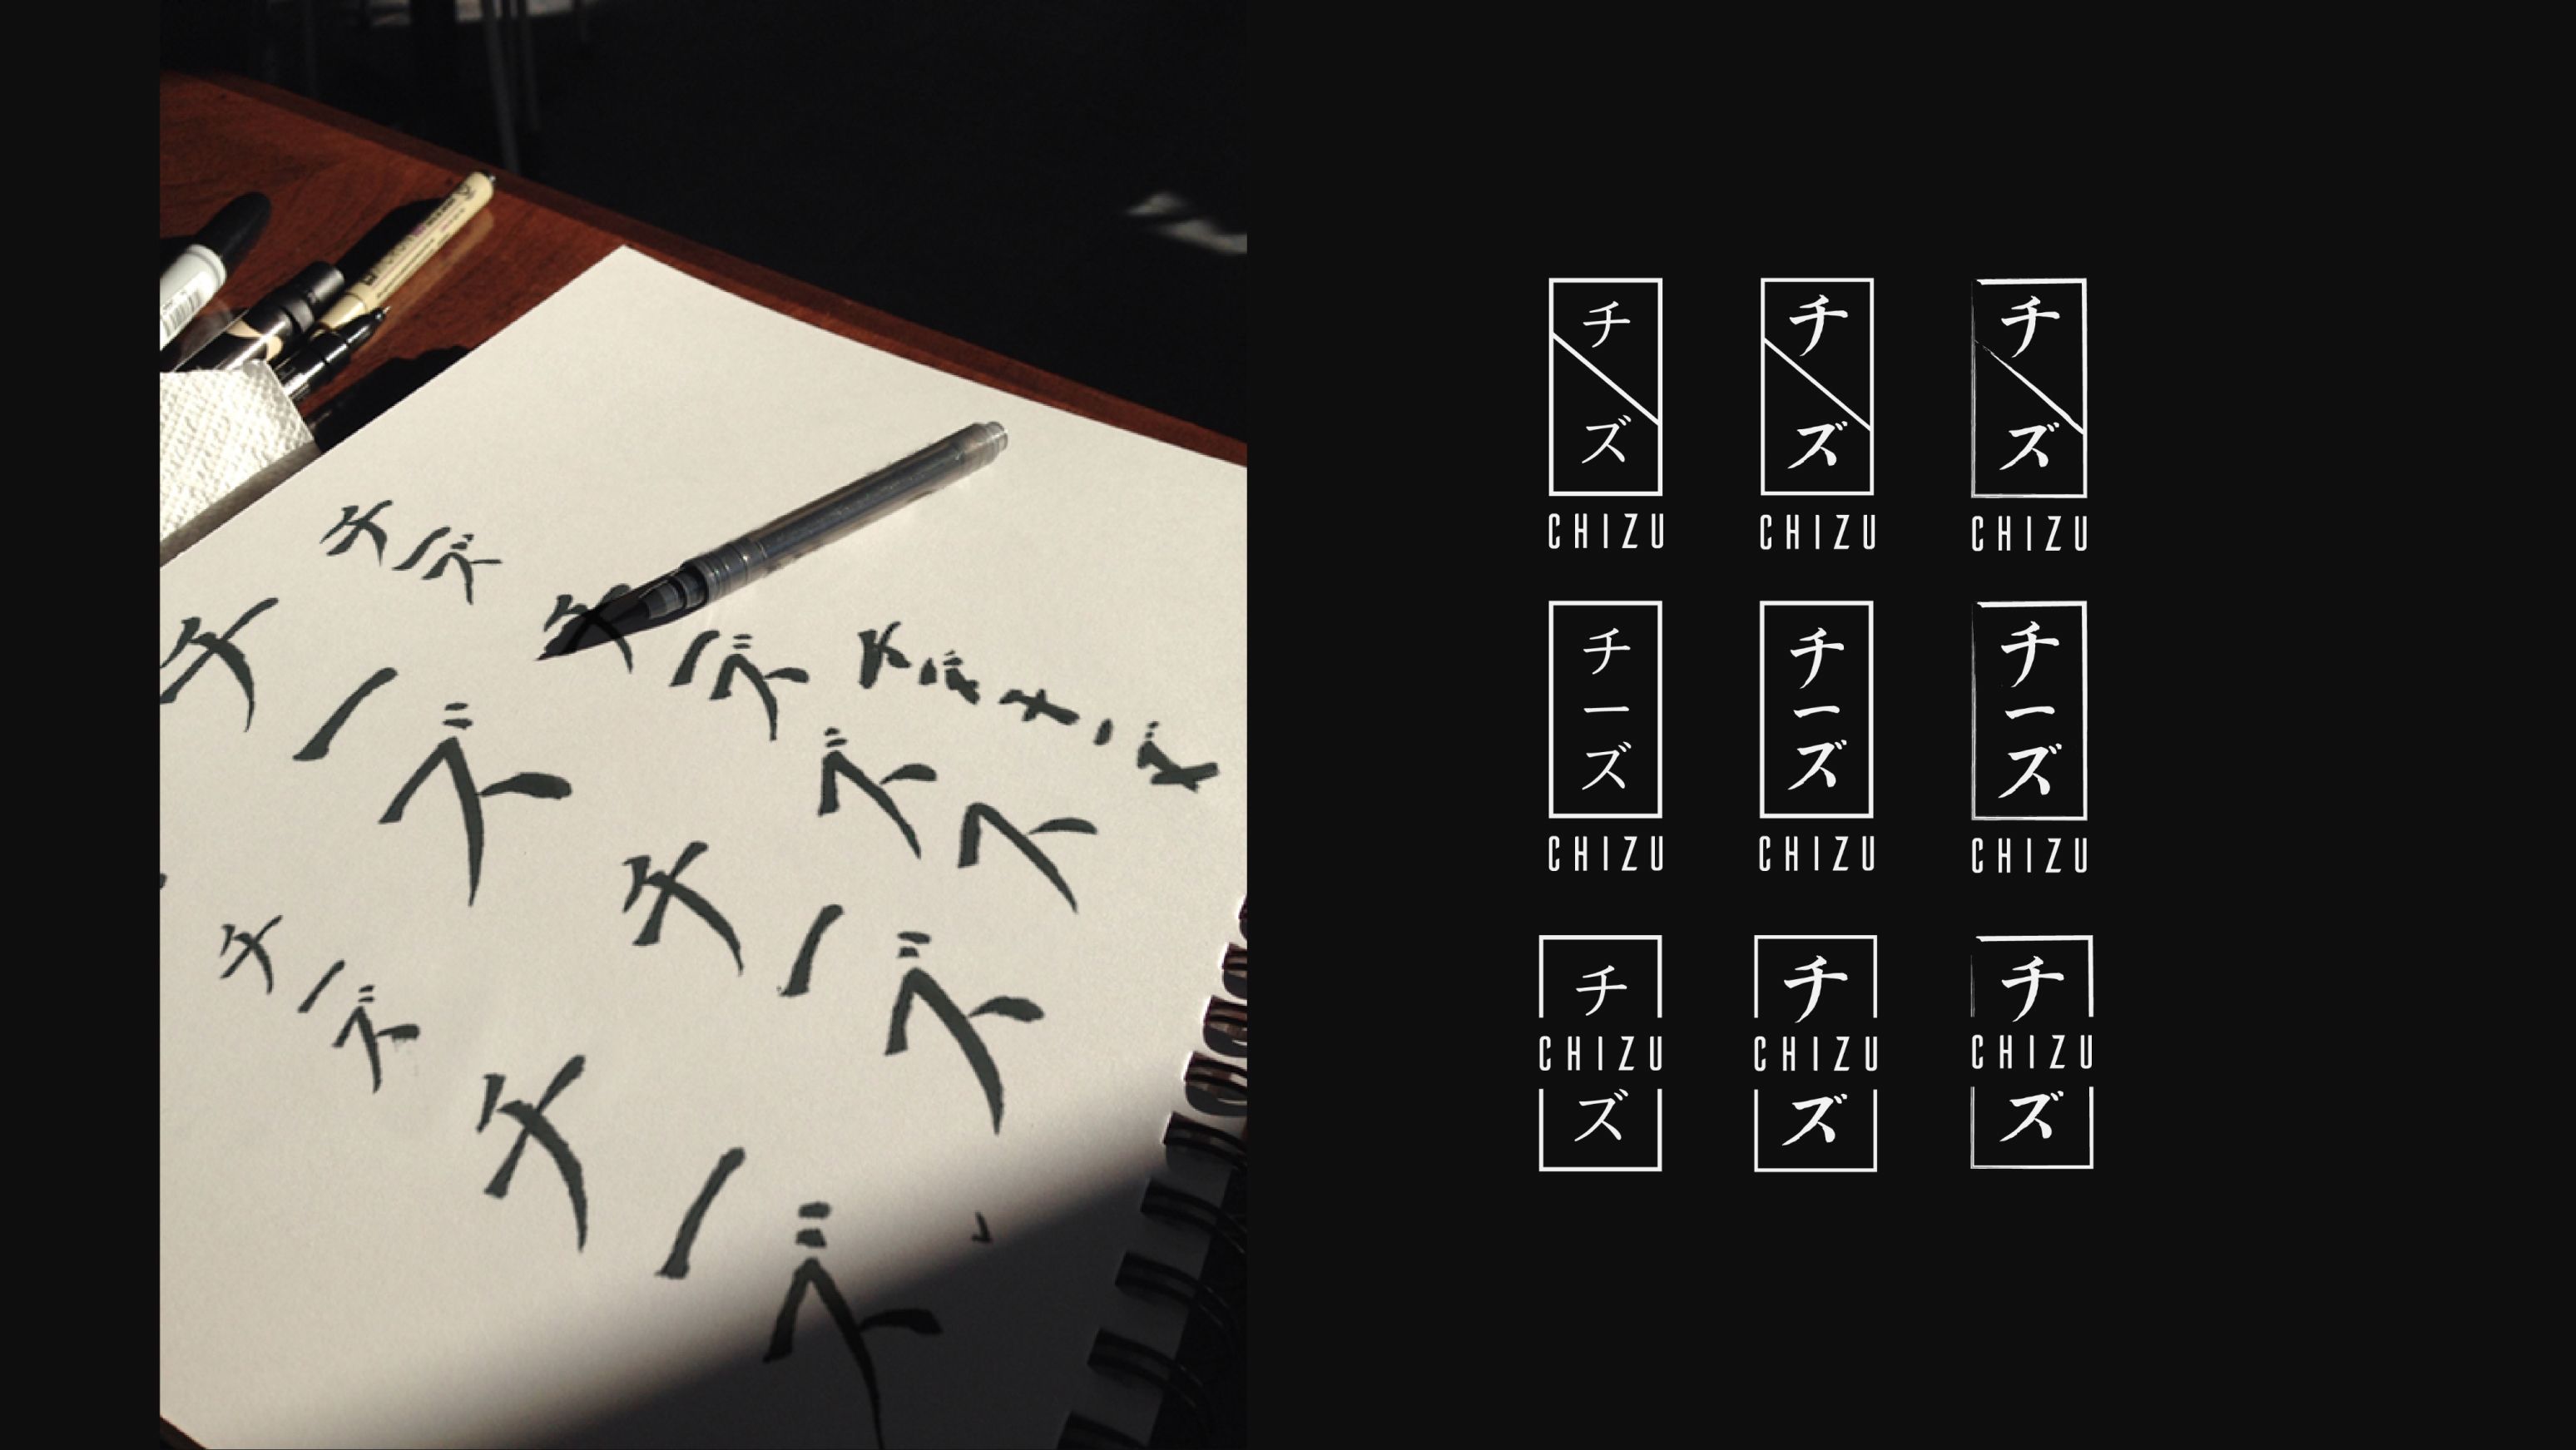 チーズ
チーズ
チーズ
ズ
ス
チーズ
チーズ
チーズ
チ
ズ
CHIZU
チ
ズ
CHIZU
チ
ズ
CHIZU
チーズ
CHIZU
チーズ
CHIZU
チーズ
CHIZU
チ
CHIZU
ズ
チ
CHIZU
ズ
チ
CHIZU
ズ